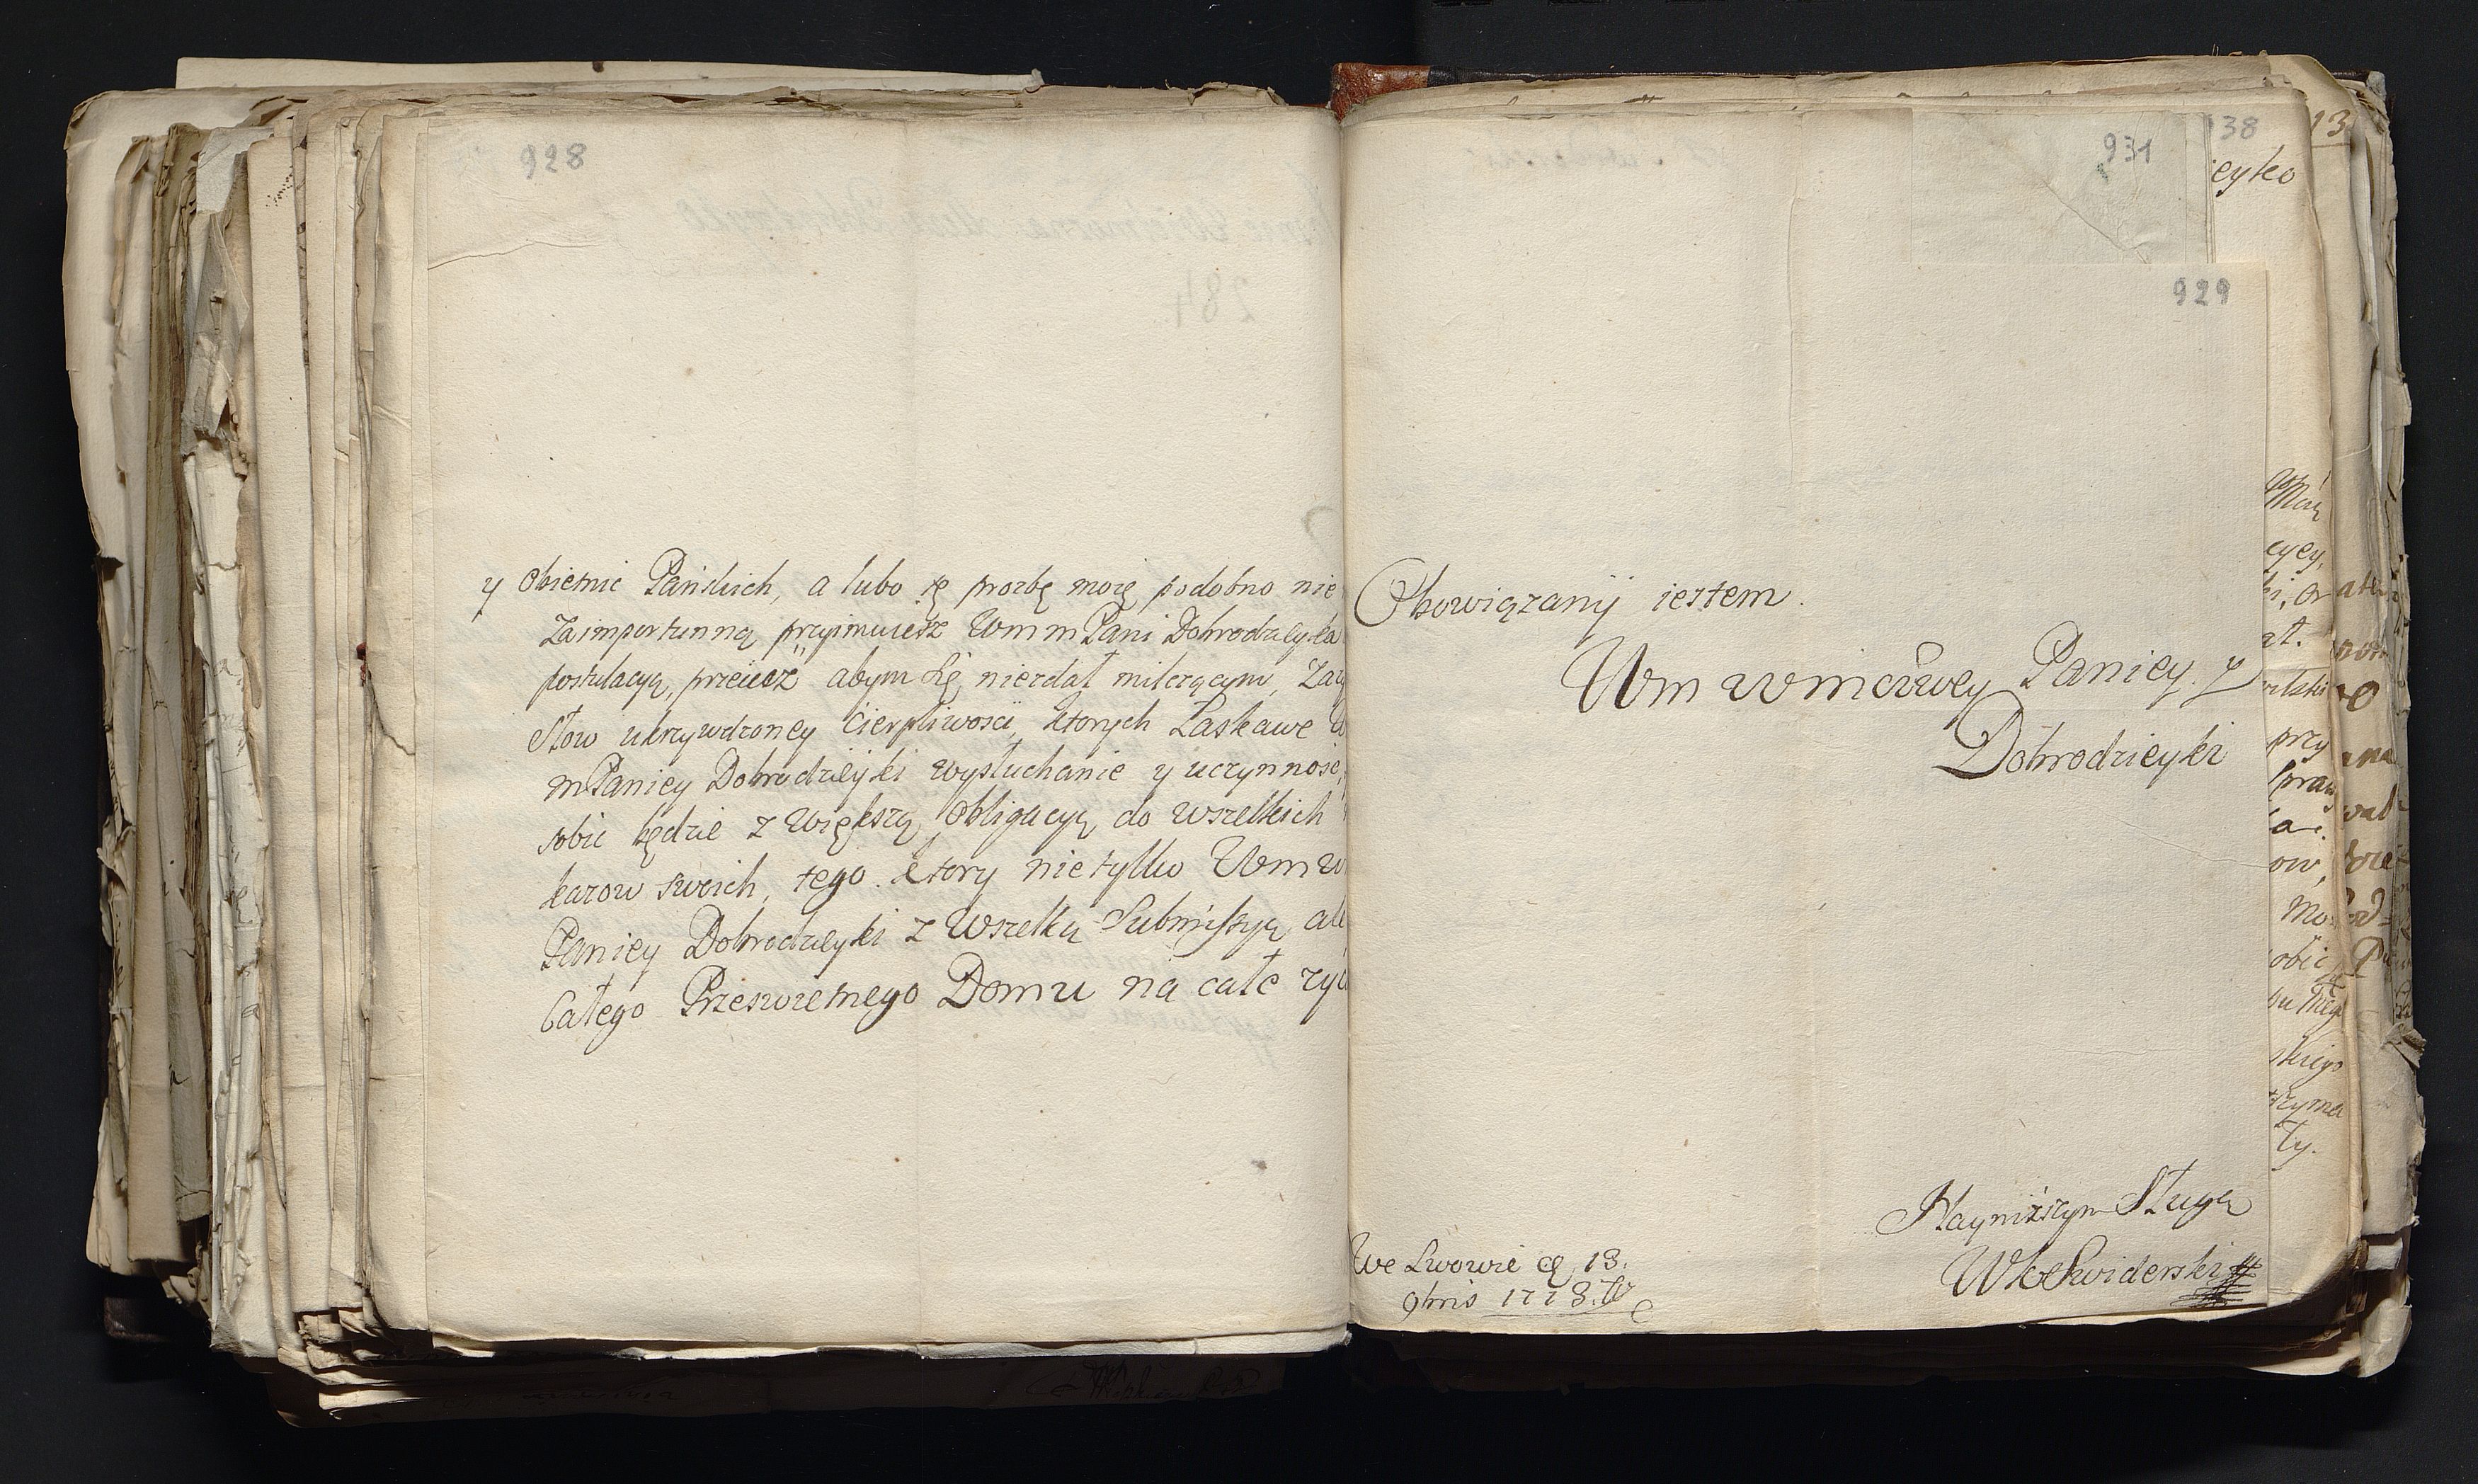 928
y Obietnic Pańskich, a lubo tę prozbę moię podobno nie
Zaimportunną przyimuiesz Wm m Pani Dobrodzieyka
postulacyą, przeciesz abym się niezdał milczącym,
Słow ukrzywdzoney Cierpliwosci, ktorych Łaskawe
mPaniey Dobrodzieyki wysłuchanie y uczynnosc,
sobie będzie z Większą Obligacyą do wszelkich
kazow swoich, tego. ktory nie tylko Wm
Paniey Dobrodzieyki z Wszelką Submissyą ale
Całego Przeswietnego Domu na całe
931
38
13
eyko
929
Obowiązany iestem.
Wm Paniey. y
Dobrodzieyki
Nayniższym Sługą
Swiderski
We Lwowie 13.
9bris